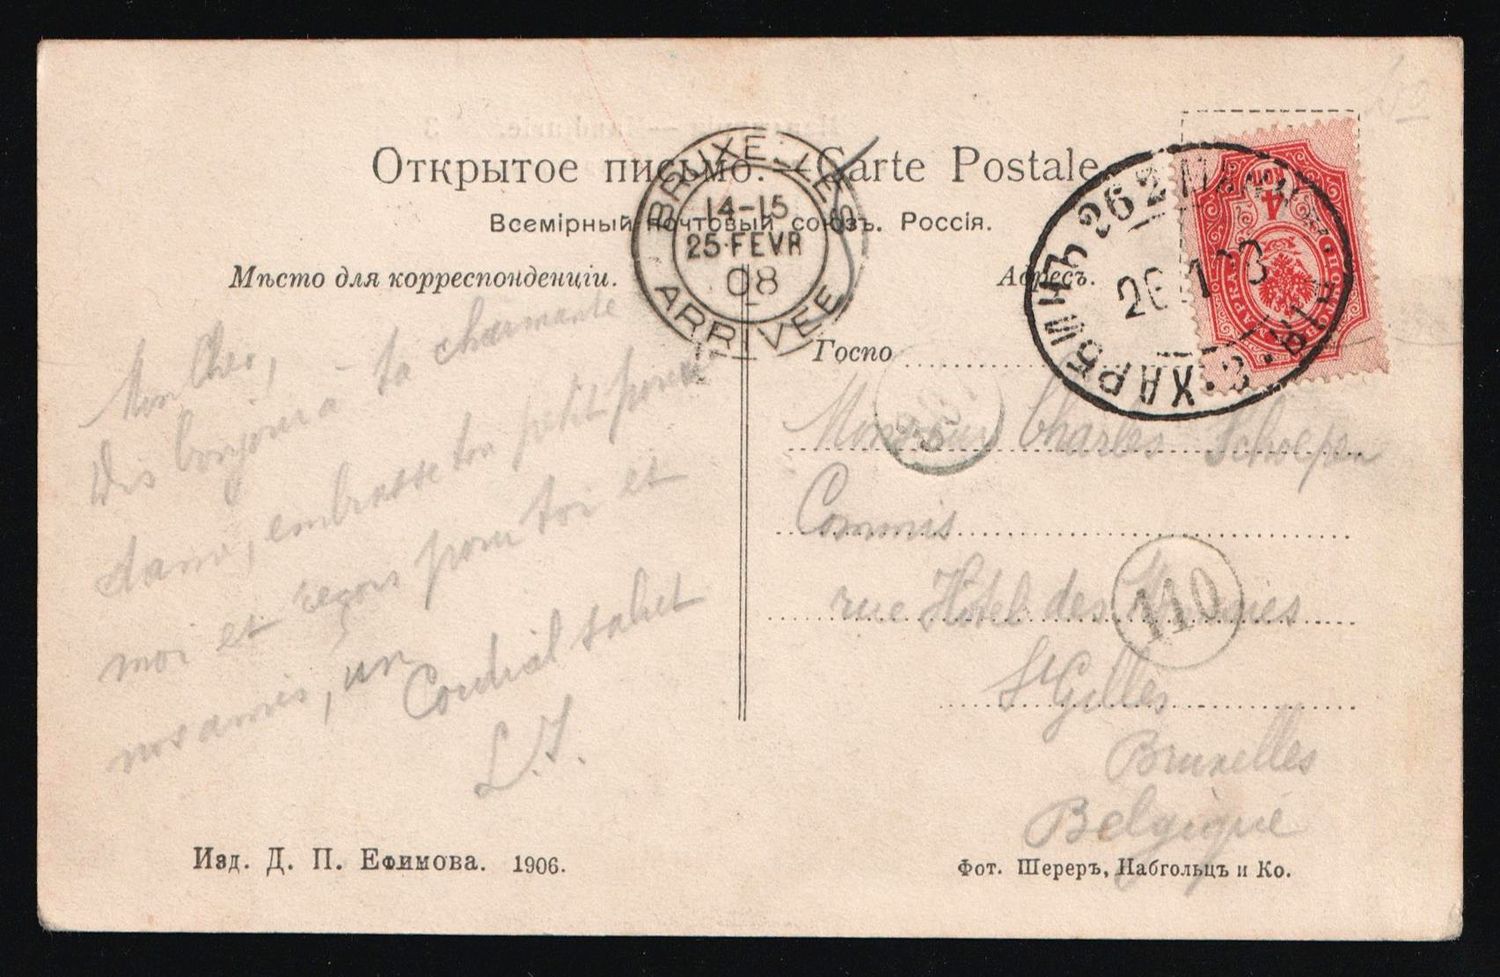 Открытое письмо. — Carte Postale
Всемірный почтовый союзъ. Россія.
Мѣсто для корреспонденціи.
Адресъ.
BRUXELLES
14-15
25 FEVR
08
ARRIVEE
ХАРБИНЪ 262 МАНЧЖУР.
26 1 08
4
Mon Cher,
Dis bonjour à ta charmante
dame, embrasse ton petit pour
moi et reçois pour toi et
nos amis, un
Cordial salut
L.J.
Госпо
Monsieur Charles Schoepen
Commis
rue Hôtel des Monnaies
110
St Gilles
Bruxelles
Belgique
Изд. Д. П. Ефимова. 1906.
Фот. Шереръ, Набгольцъ и Ко.